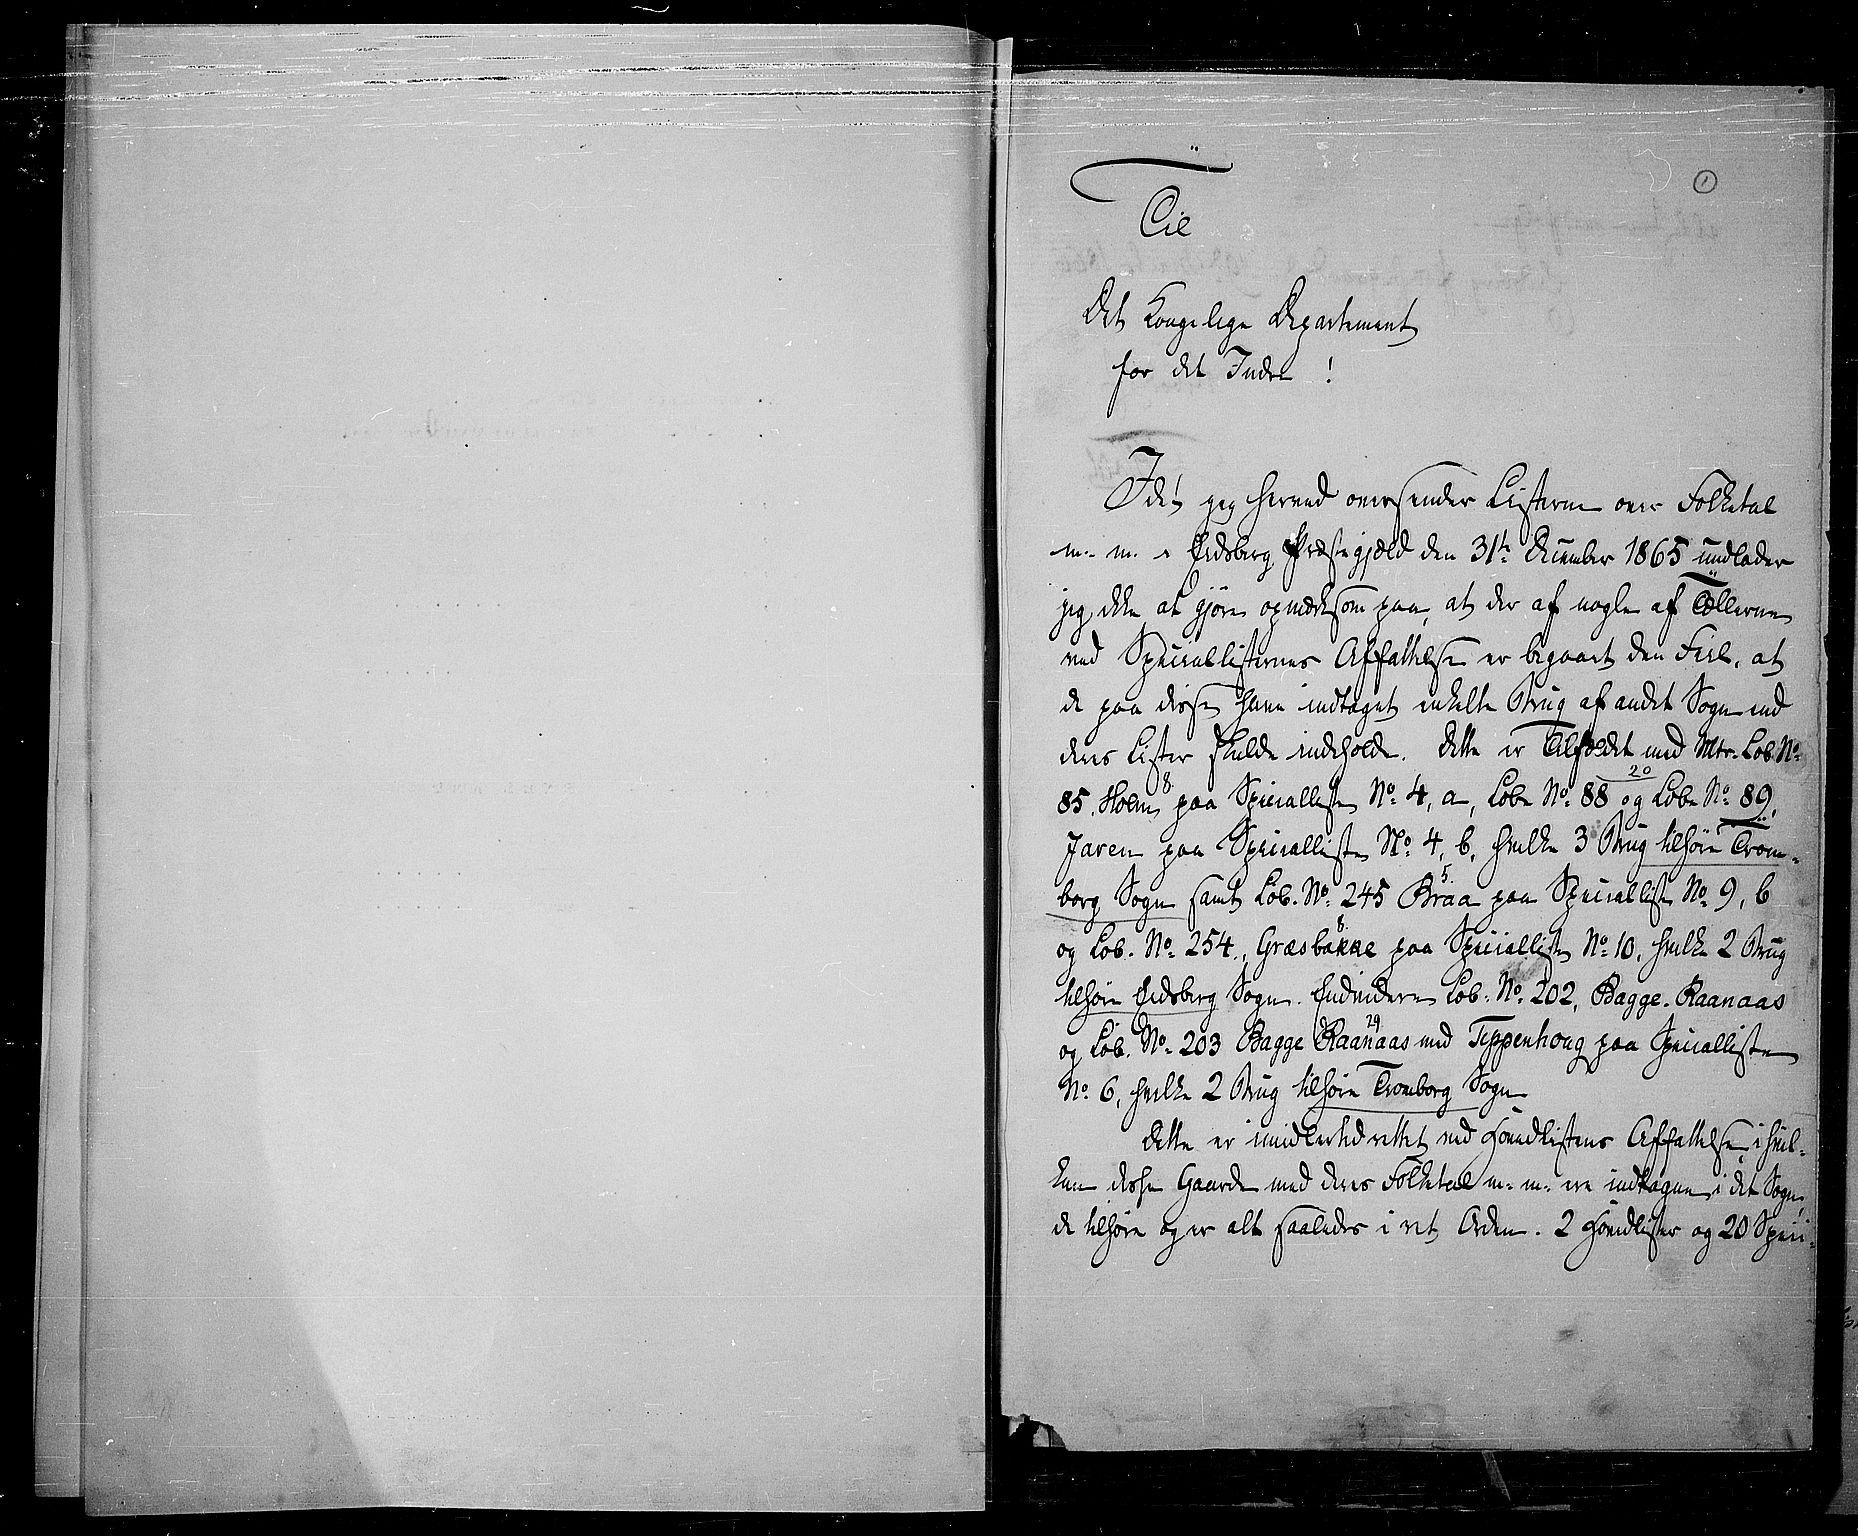 1
Til
Det Kongelige Departement
for det Indre!
Idet jeg herved oversender Listerne over Folketal
m. m. i Eidsberg Præstegjæld den 31te December 1865 undlader
jeg ikke at gjøre opmærksom paa, at der af nogle af Tællerne
ved Speciallisternes Affattelse er begaaet den Feil, at
de paa disse have indtaget enkelte Brug af andet Sogn end
deres Lister skulde indeholde. Dette er Tilfældet med Mtr. Lob. No.
85, Holm 8 paa Specialliste No. 4, a, Lobe No. 88 og Lobe No. 89, 20
Jaren paa Specialliste No. 4, b, hvilke 3 Brug tilhøre Trom-
borg Sogn samt Lob. No. 245 Braa 5 paa Specialliste No. 9, b
og Lob. No. 254, Græsbakke 8 paa Specialliste No. 10, hvilke 2 Brug
tilhøre Eidsberg Sogn. Endvidere Lob. No. 202, Bagge-Raanaas
og Lob. No. 203 Bagge Raanaas 29 med Teppenhoug paa Specialliste
No. 6, hvilke 2 Brug tilhøre Tromborg Sogn
Dette er imidlertid rettet ved Hovedlistens Affattelse, i hvil-
ken disse Gaarde med deres Folketal m. m. ere indtagne i det Sogn,
de tilhøre og er alt saaledes i ret Orden. 2 Hovedlister og 20 Speci-